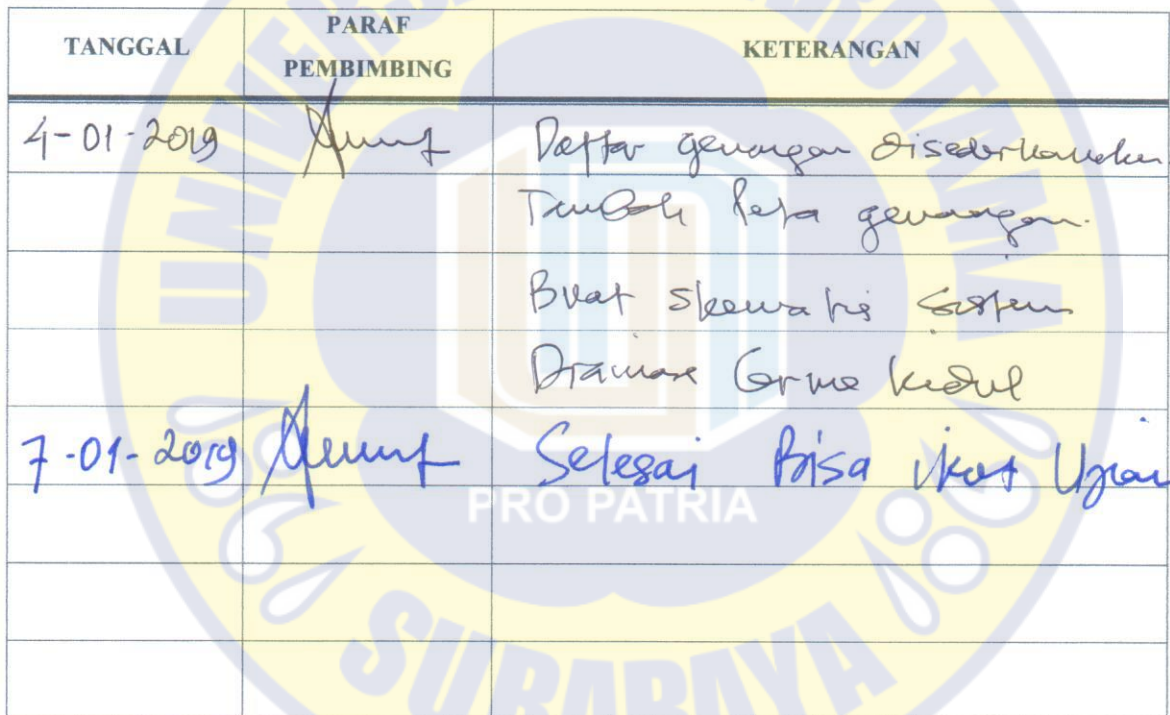 TANGGAL PARAF PEMBIMBING KETERANGAN
4-01-2019 Daftar genangan disederhanakan
Tambah Peta genangan.
Buat skematis sistem
Drainase Cerme Kidul
7-01-2019 Selesai Bisa ikut Ujian
PRO PATRIA
SURABAYA